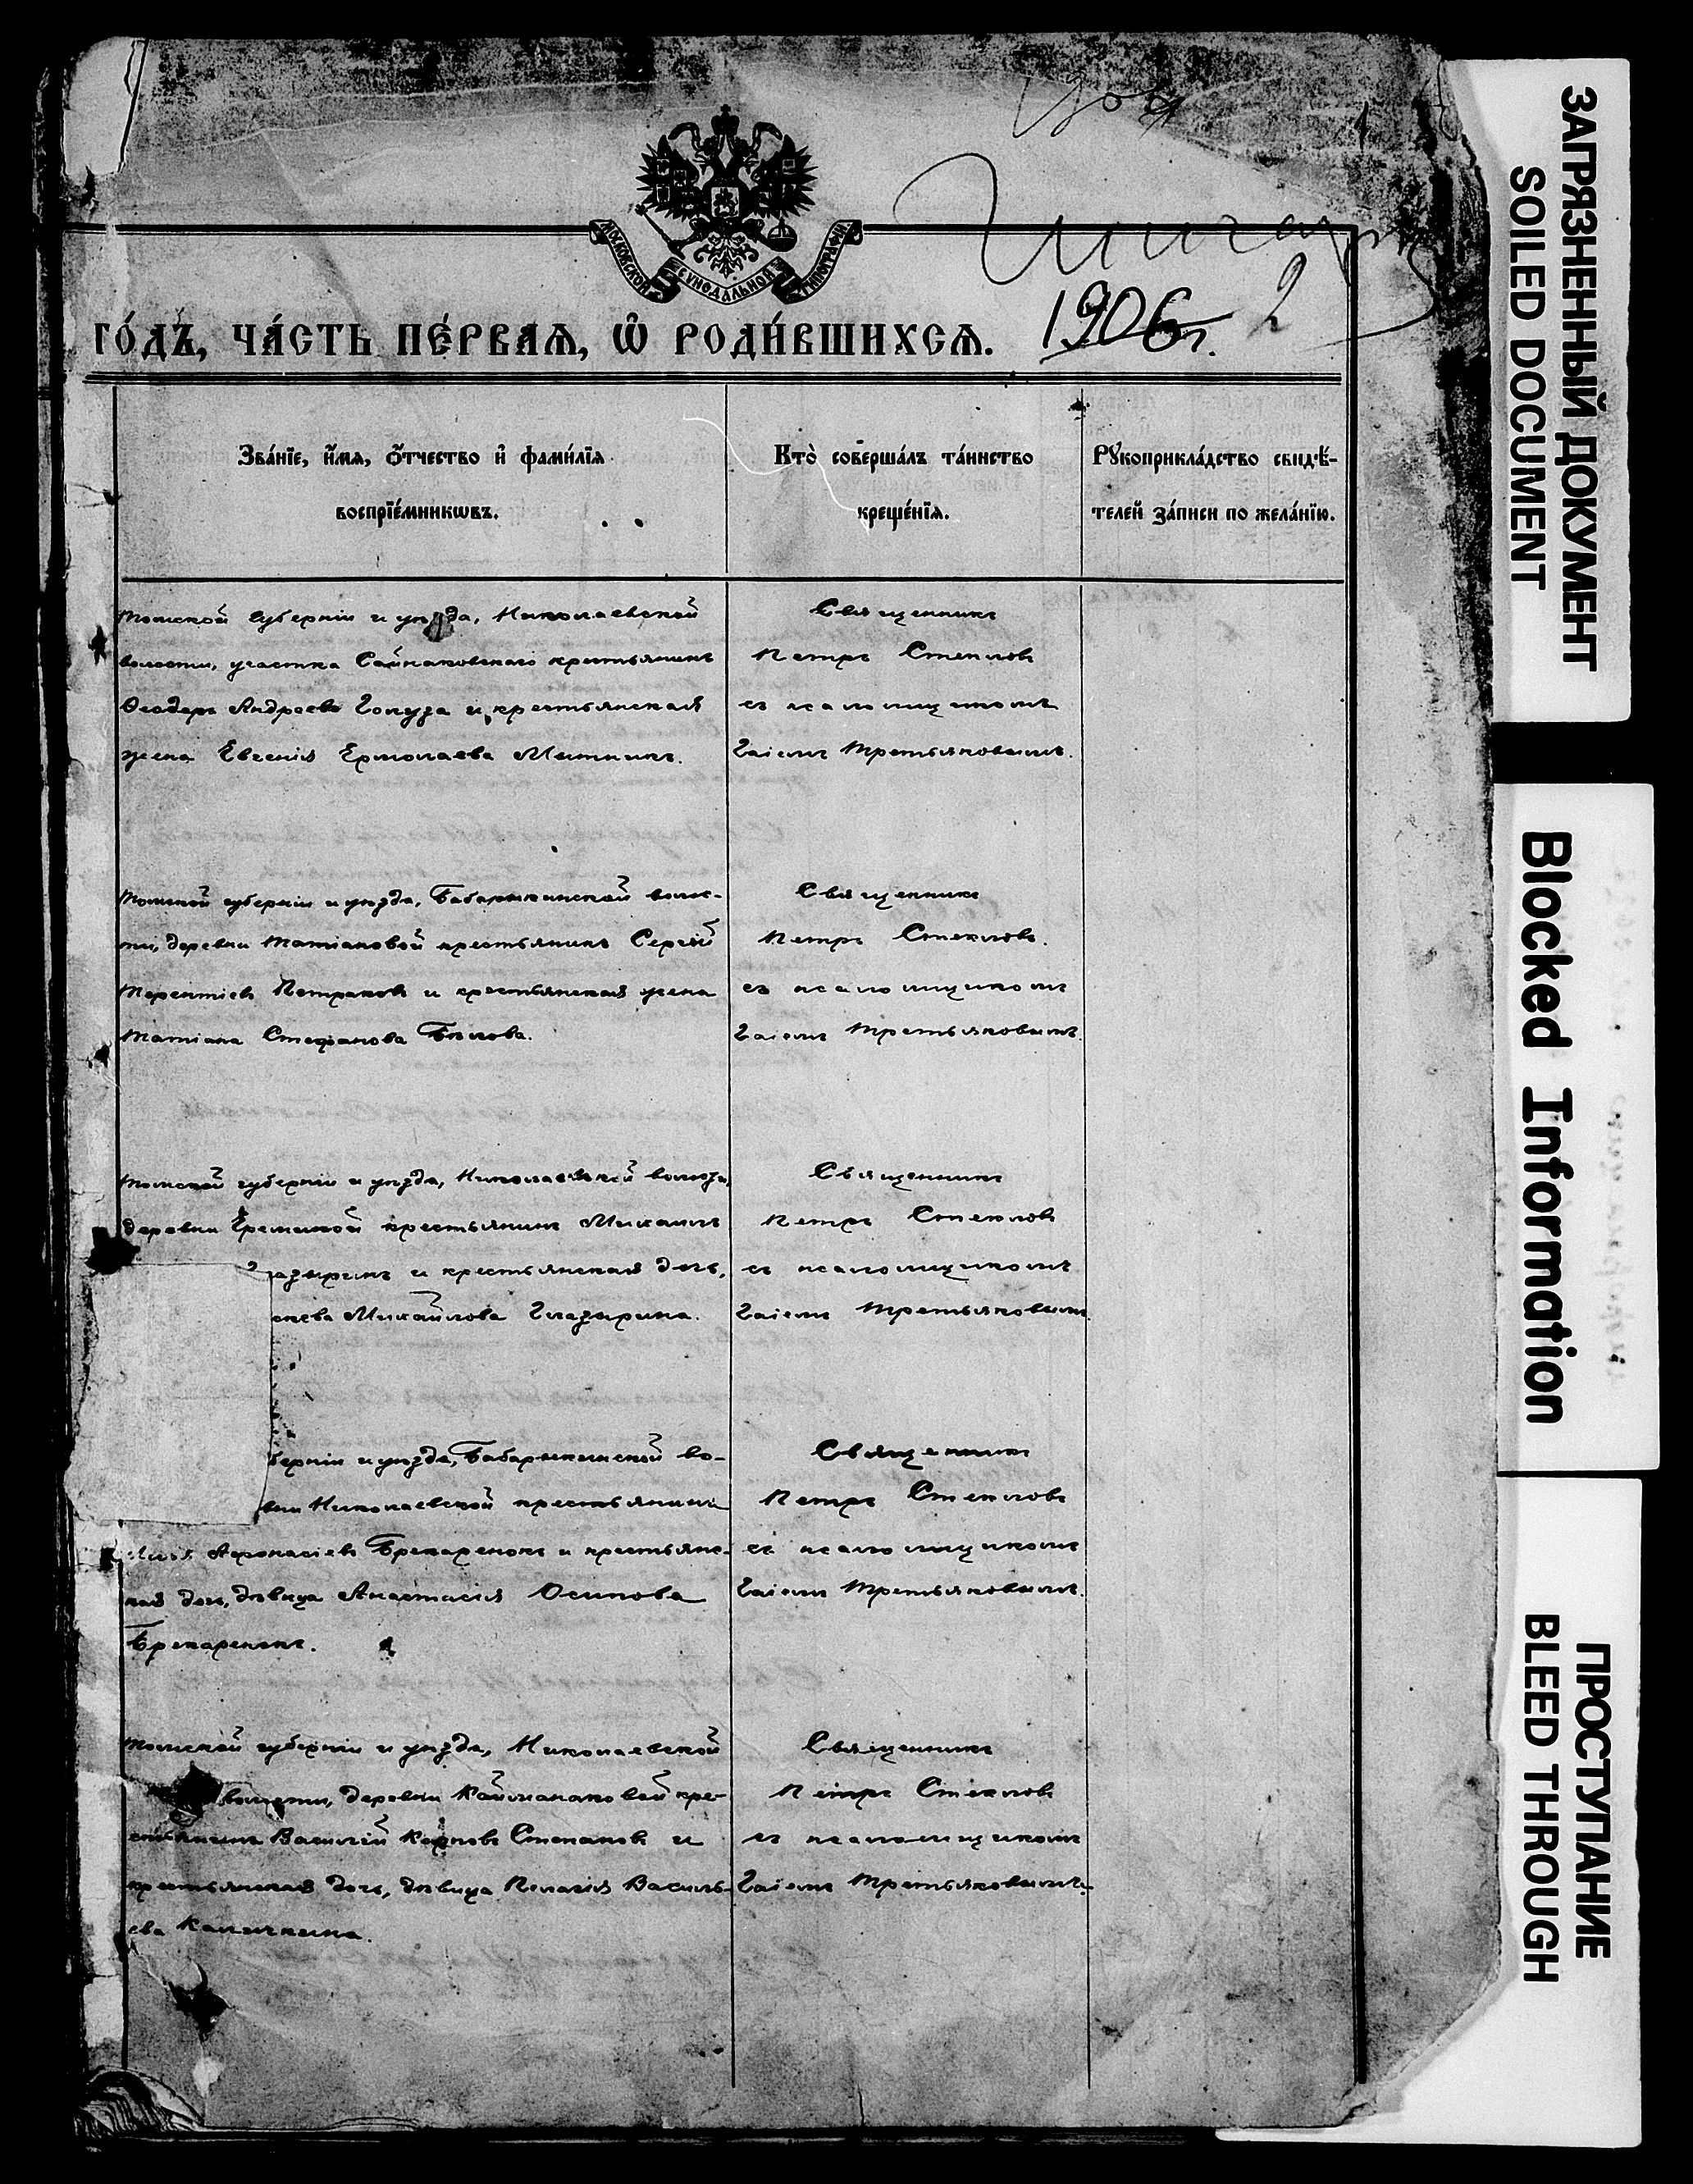 МОСКОВСКОЙ СУНОДАЛЬНОЙ ТИПОГРАФІИ
ГО́ДЪ, ЧА́СТЬ ПЕ́РВАѦ, Ѽ РОДИ́ВШИХСѦ. 1906 г. 2
Зва́нїе, и҆́мѧ, ѻ҆́тчество и҆ фами́лїѧ
воспрїе́мникѡвъ.
Кто̀ соверша́лъ та́инство
креще́нїѧ.
Рꙋкоприкла́дство свидѣ́-
телей за́писи по жела́нїю.
Томской губерніи и уѣзда, Николаевской
волости, участка крестьянинъ
Ѳеодоръ Андреевъ и крестьянская
жена Евгенія Ермолаева
Священникъ
Петръ Стеклов
съ псаломщикомъ
Гаіемъ Третьяковымъ.
Томской губерніи и уѣзда, Бабарыкинской волос-
ти, деревни Татіановой крестьянинъ Сергѣй
Терентіевъ Петраковъ и крестьянская жена
Татіана Стефанова Бѣлова.
Священникъ
Петръ Стекловъ.
съ псаломщикомъ
Гаіемъ Третьяковымъ.
Томской губерніи и уѣзда, Николаевской
деревни Ереминой крестьянинъ Михаилъ
азыринъ и крестьянская дочь,
Михайлова Глазырина.
Священникъ
Петръ Стекловъ
съ псаломщикомъ
Гаіемъ Третьяковымъ.
берніи и уѣзда, Бабарыкинской во-
вни Николаевской крестьянинъ
Афонасіевъ Брекаренокъ и крестьянс-
кая дочь, дѣвица Анастасія Осипова
Брекаренокъ.
Священникъ
Петръ Стекловъ
съ псаломщикомъ
Гаіемъ Третьяковымъ.
Томской губерніи и уѣзда, Николаевской
волости, деревни Кайманаковой кре-
стьянинъ Василій Карповъ Степановъ и
крестьянская дочь, дѣвица Пелагія Василь-
ева Каличкина.
Священникъ
Петръ Стекловъ
съ псаломщикомъ
Гаіемъ Третьяковымъ.
ЗАГРЯЗНЕННЫЙ ДОКУМЕНТ
SOILED DOCUMENT
Blocked Information
ПРОСТУПАНИЕ
BLEED THROUGH